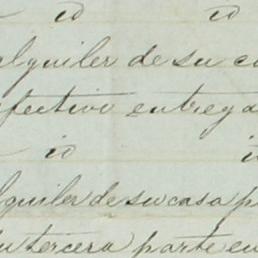 id id
alquiler de su c
efective entrega
id i
alquiler de su casa p
su tercera parte en